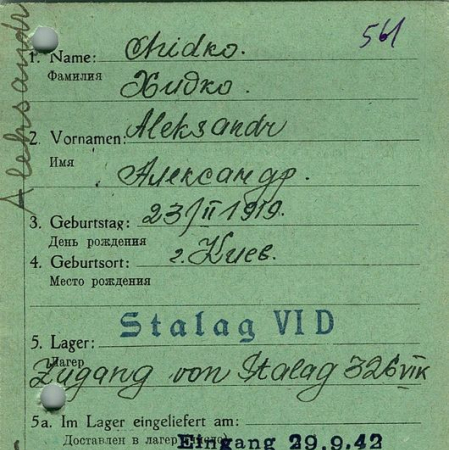 Aleksandr
561
1. Name: Chidko.
Фамилия
Хидко.
2. Vornamen: Aleksandr
Имя
Александр.
3. Geburtstag: 23/II 1919.
День рождения
4. Geburtsort: г. Киев.
Место рождения
Stalag VI D
5. Lager:
Лагерь
Zugang von Stalag 326 VIK
5a. Im Lager eingeliefert am:
Доставлен в лагерь (число)
Eingang 29.9.42